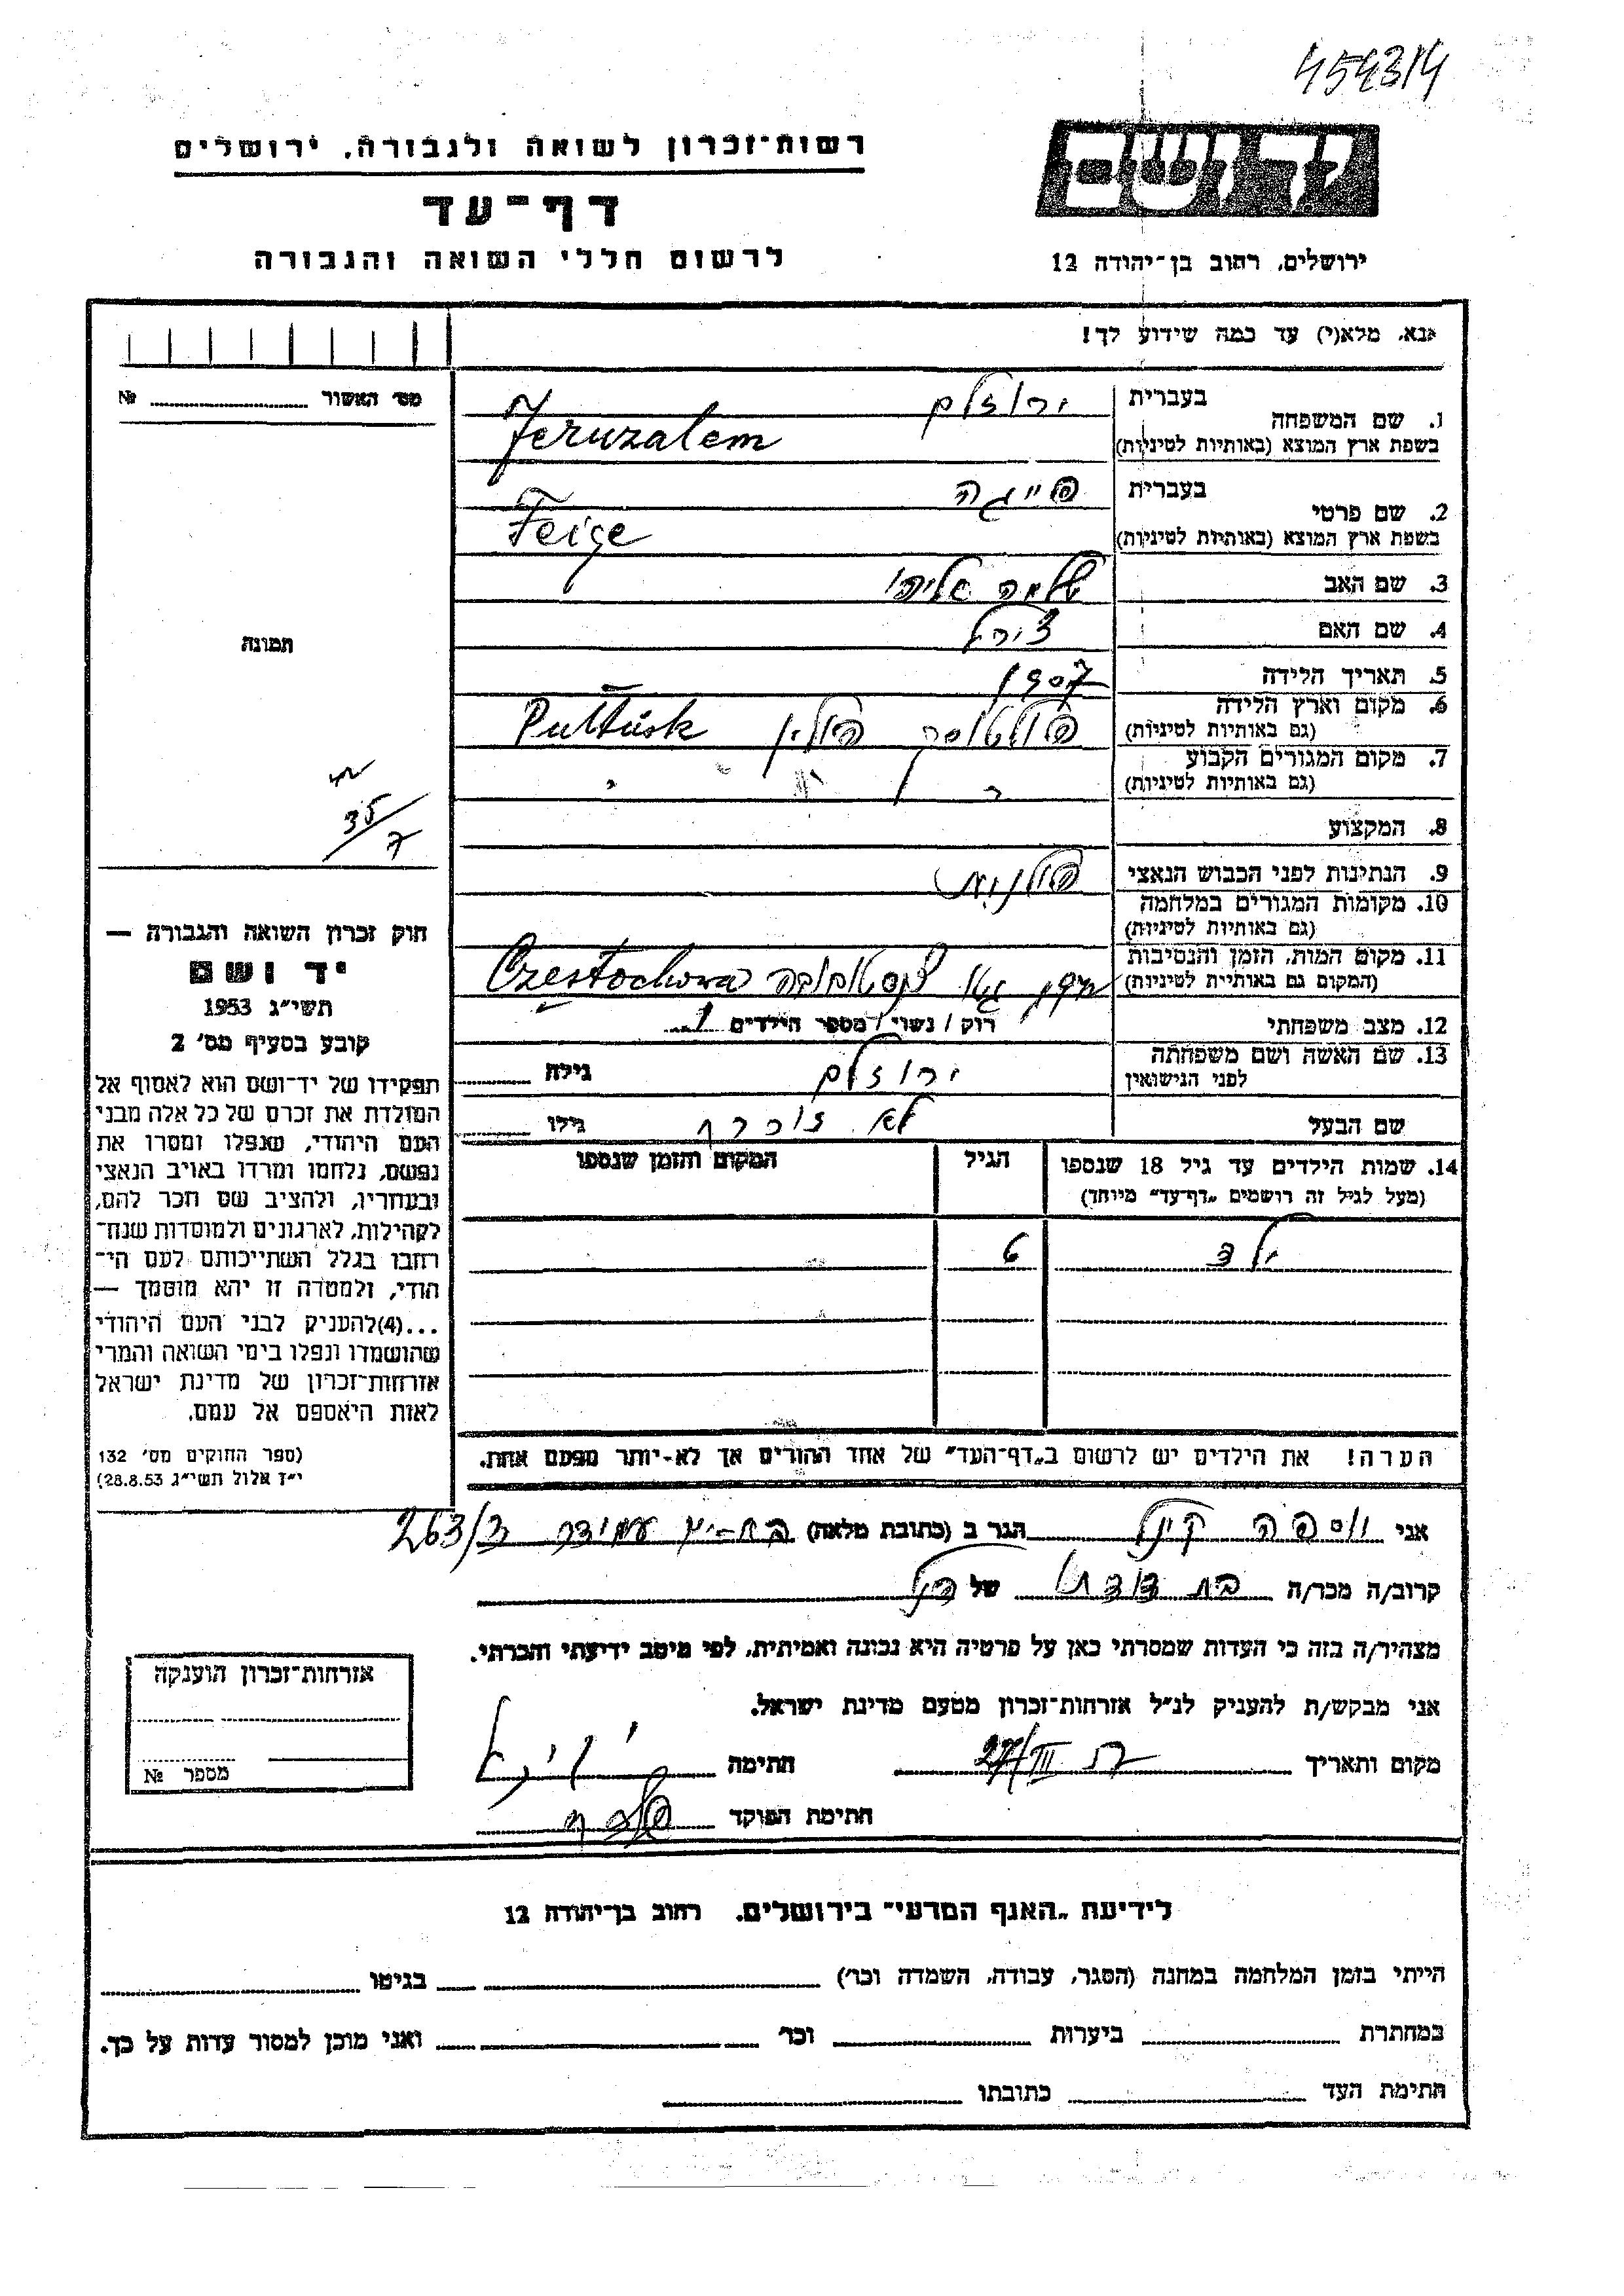 454314
רשות־זכרון לשואה ולגבורה, ירושלים
דף־עד
לרשום חללי השואה והגבורה
יד ושם
ירושלים, רחוב בן־יהודה 12
אנא, מלא(י) עד כמה שידוע לך!
מס' האשור № 
1. שם המשפחה בעברית ירוזלם
בשפת ארץ המוצא (באותיות לטיניות) Jeruzalem
2. שם פרטי בעברית פייגה
בשפת ארץ המוצא (באותיות לטיניות) Feige
3. שם האב שלמה אליהו
4. שם האם
5. תאריך הלידה 1907
6. מקום וארץ הלידה (גם באותיות לטיניות) פולטוסק פולין Pułtusk
7. מקום המגורים הקבוע (גם באותיות לטיניות)
8. המקצוע
9. הנתינות לפני הכבוש הנאצי פולנית
10. מקומות המגורים במלחמה (גם באותיות לטיניות)
11. מקום המות, הזמן והנסיבות (המקום גם באותיות לטיניות) גטו צנסטוכובה Czestochowa
12. מצב משפחתי רוק / נשוי / מספר הילדים 1
13. שם האשה ושם משפחתה לפני הנישואין ירוזלם גילה
שם הבעל לא זוכרת גילו
14. שמות הילדים עד גיל 18 שנספו (מעל לגיל זה רושמים "דף־עד" מיוחד) הגיל המקום והזמן שנספו
ילד 6
הערה! את הילדים יש לרשום ב"דף־העד" של אחד ההורים אך לא־יותר מפעם אחת.
תמונה
35/7
חוק זכרון השואה והגבורה —
יד ושם
תשי"ג 1953
קובע בסעיף מס' 2
תפקידו של יד־ושם הוא לאסוף אל
המולדת את זכרם של כל אלה מבני
העם היהודי, שנפלו ומסרו את
נפשם, נלחמו ומרדו באויב הנאצי
ובעוזריו, ולהציב שם וזכר להם,
לקהילות, לארגונים ולמוסדות שנח־
רבו בגלל השתייכותם לעם הי־
הודי, ולמטרה זו יהא מוסמך —
...(4)להעניק לבני העם היהודי
שהושמדו ונפלו בימי השואה והמרי
אזרחות־זכרון של מדינת ישראל
לאות היאספם אל עמם.
(ספר החוקים מס' 132
י"ז אלול תשי"ג 28.8.53)
אני הגר ב (כתובת מלאה) בת־ים עמידר 263/3
קרוב/ה מכר/ה בת דודתו של
מצהיר/ה בזה כי העדות שמסרתי כאן על פרטיה היא נכונה ואמיתית, לפי מיטב ידיעתי והכרתי.
אני מבקש/ת להעניק לנ"ל אזרחות־זכרון מטעם מדינת ישראל.
מקום ותאריך 27/III חתימה
חתימת הפוקד
אזרחות־זכרון הוענקה
מספר №
לידיעת "האגף המדעי" בירושלים. רחוב בן־יהודה 12
הייתי בזמן המלחמה במחנה (הסגר, עבודה, השמדה וכו') בגיטו
במחתרת ביערות וכו' ואני מוכן למסור עדות על כך.
חתימת העד כתובתו